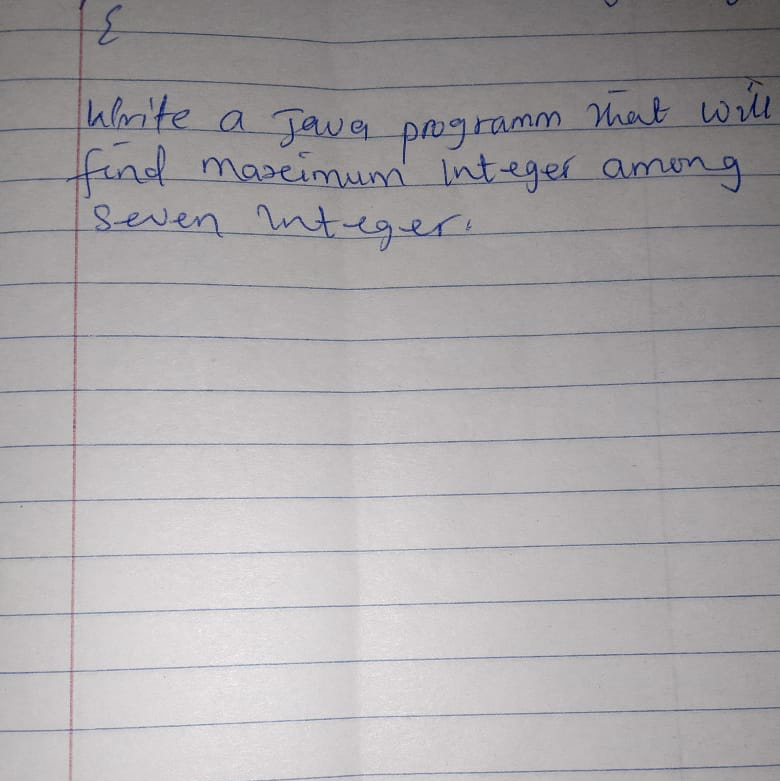 {
Write a Java programm that will
find maximum integer among
seven integer.